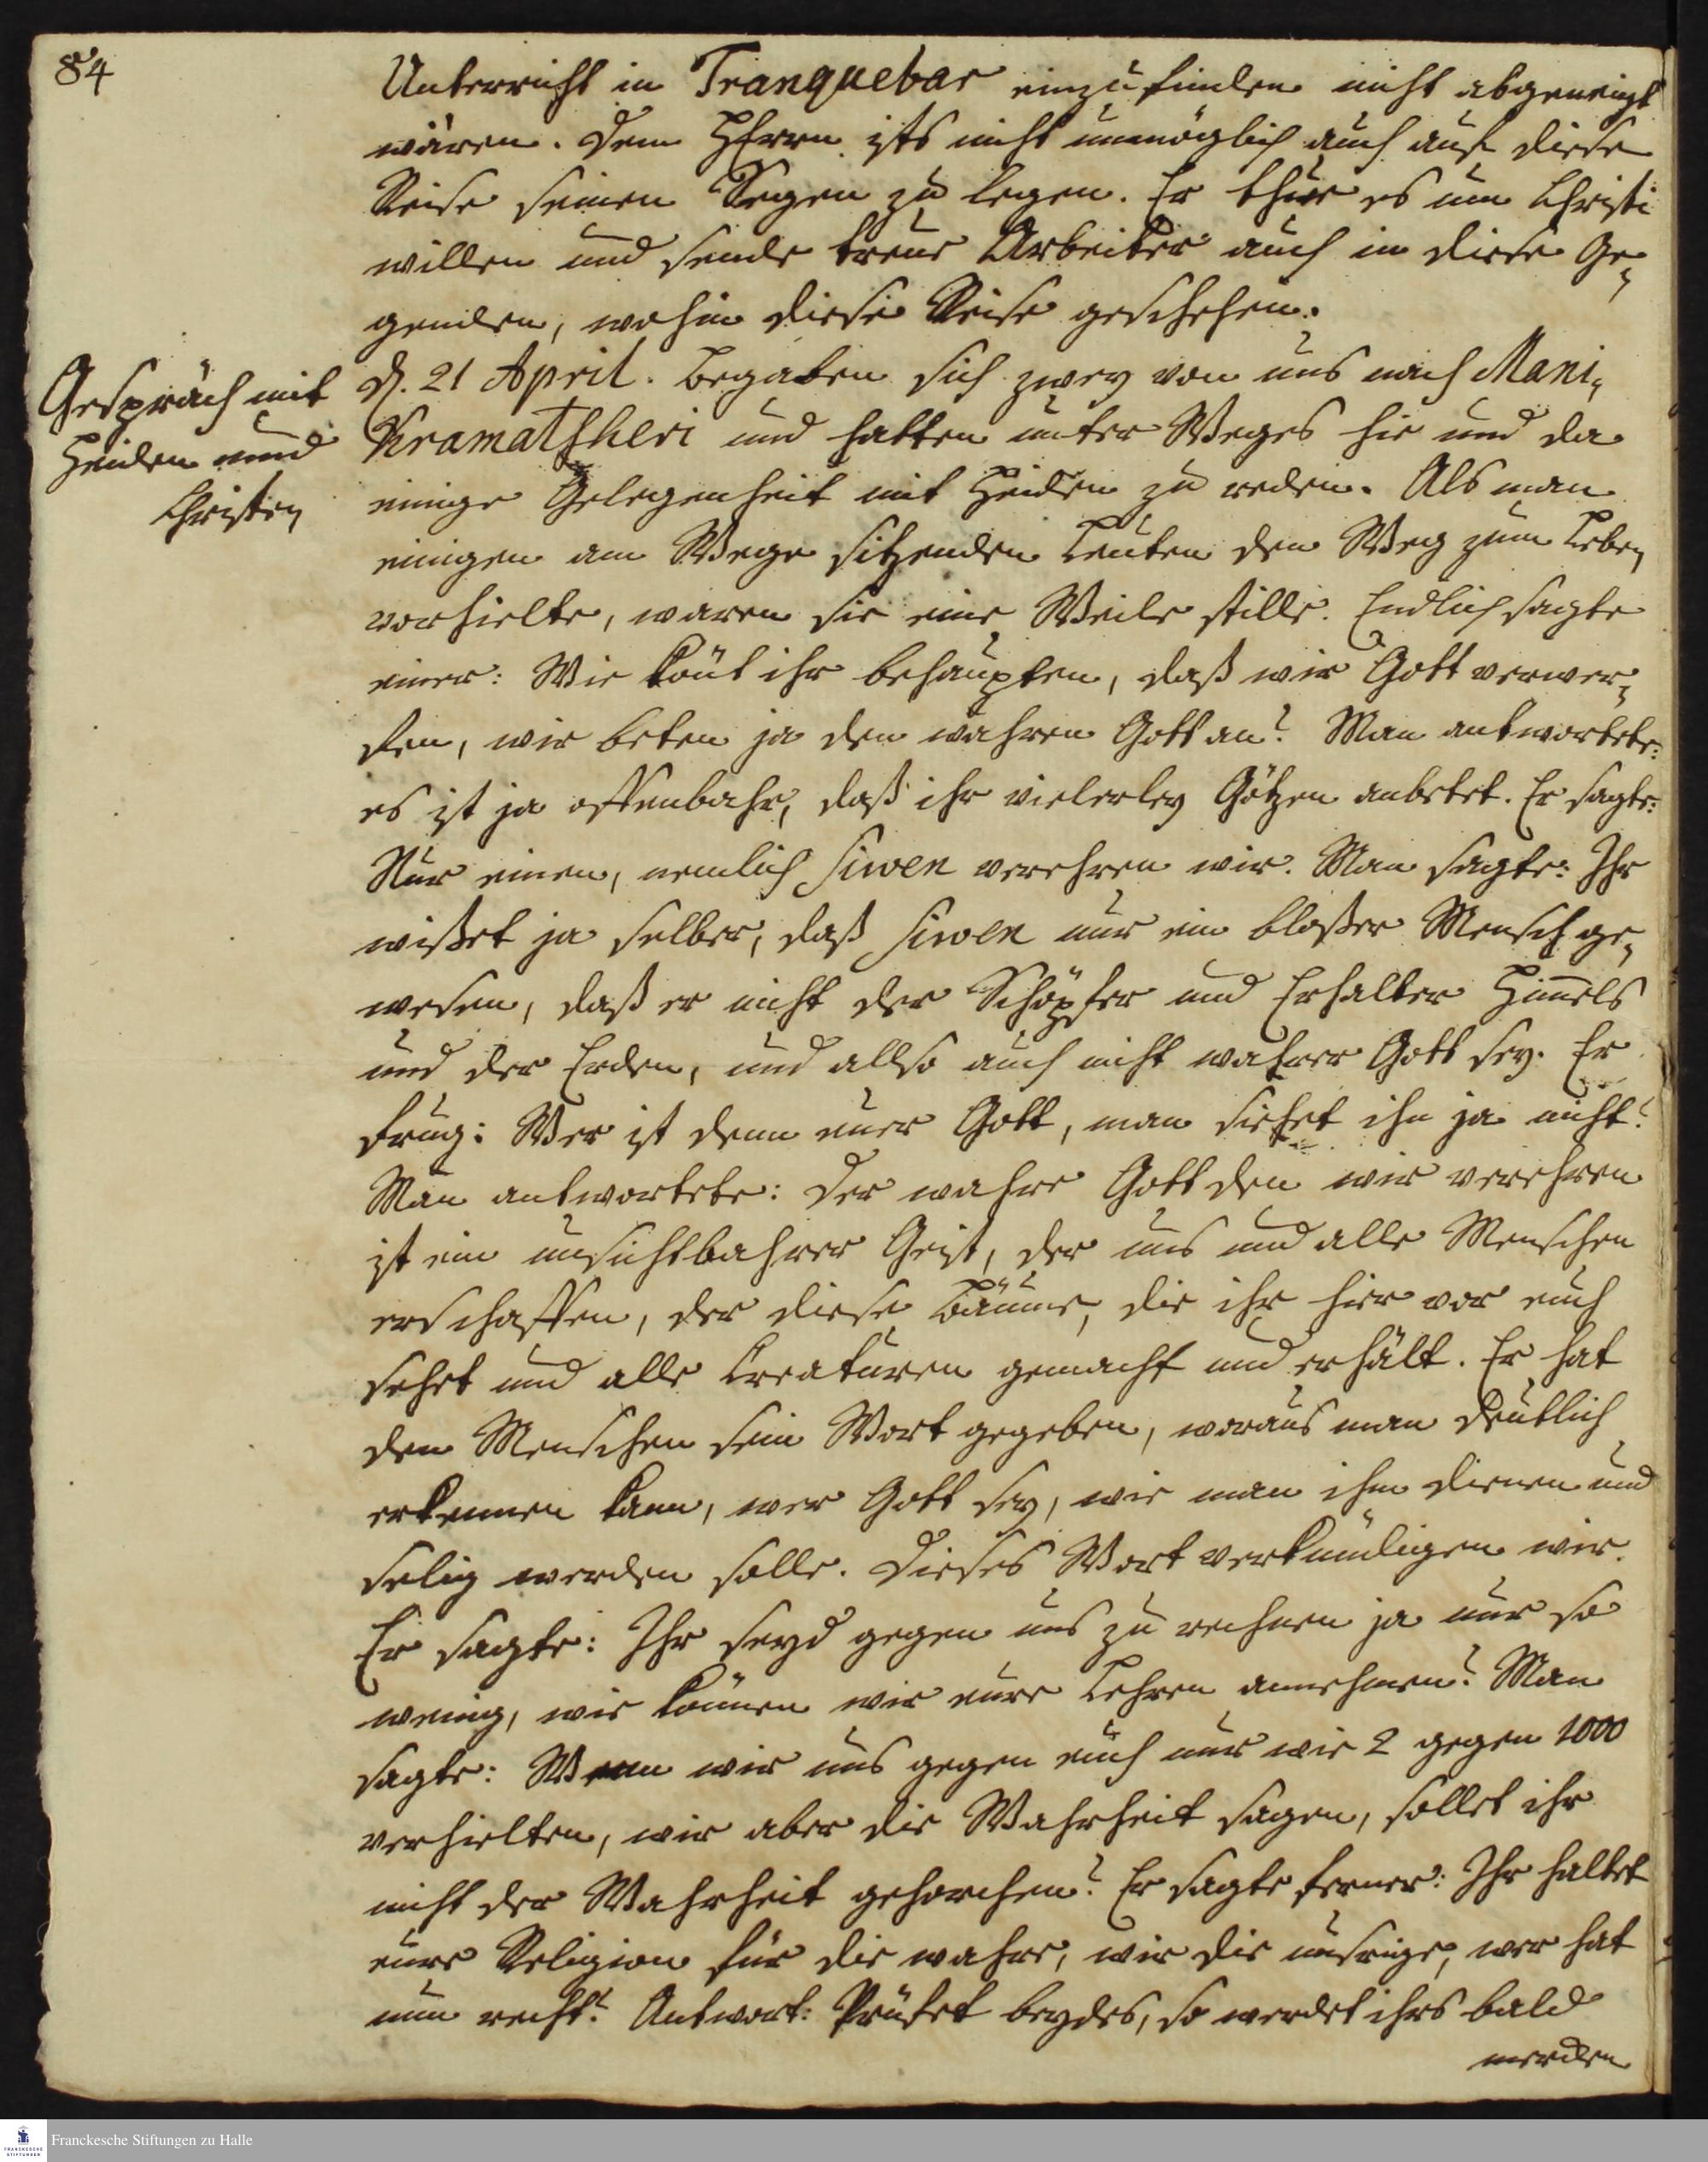 84
Unterricht in Tranquebar einzufinden nicht abgeneigt
wären. Dem HErrn ists nicht unmöglich auch auf diese
Reise seinen Segen zu legen. Er thue es um Christi
willen und sende treue Arbeiter auch in diese Ge-
genden, wohin diese Reise geschehen.
Gespräch mit
Heiden und
Christen
d. 21 April. begaben sich zwey von uns nach Mani-
Kramatsheri und hatten unter Weges hie und da
einige Gelegenheit mit Heiden zu reden. Als man
einigen am Wege sitzenden Leuten den Weg zum Leben
vorhielte, waren sie eine Weile stille. Endlich sagte
einer: Wie könt ihr behaupten, daß wir Gott verwer-
fen, wir beten ja den wahren Gott an? Man antwortete:
es ist ja offenbahr, daß ihr vielerley Götzen anbetet. Er sagte:
Nur einen, nemlich Siwen verehren wir. Man sagte: Ihr
wißet ja selber, daß Siwen nur ein bloßer Mensch ge-
wesen, daß er nicht der Schöpfer und Erhalter Him̅els
und der Erden, und allso auch nicht wahrer Gott sey. Er
frug: Wer ist denn euer Gott, man siehet ihn ja nicht?
Man antwortete: Der wahre Gott den wir verehren
ist ein unsichtbahrer Geist, der uns und alle Menschen
erschaffen, der diese Bäume, die ihr hier vor euch
sehet und alle Creaturen gemacht und erhält. Er hat
den Menschen sein Wort gegeben, woraus man deutlich
erkennen kann, wer Gott sey, wie man ihm dienen und
selig werden solle. Dieses Wort verkündigen wir.
Er sagte: Ihr seyd gegen uns zu rechnen ja nur so
wenig, wie können wir eure Lehren annehmen? Man
sagte: Wenn wir uns gegen euch nur wie 2 gegen 1000
verhielten, wir aber die Wahrheit sagen, soltet ihr
nicht der Wahrheit gehorchen? Er sagte ferner: Ihr haltet
eure Religion für die wahre, wir die unsrige, wer hat
nun recht? Antwort: Prüfet beydes, so werdet ihrs bald
merken
Franckesche Stiftungen zu Halle